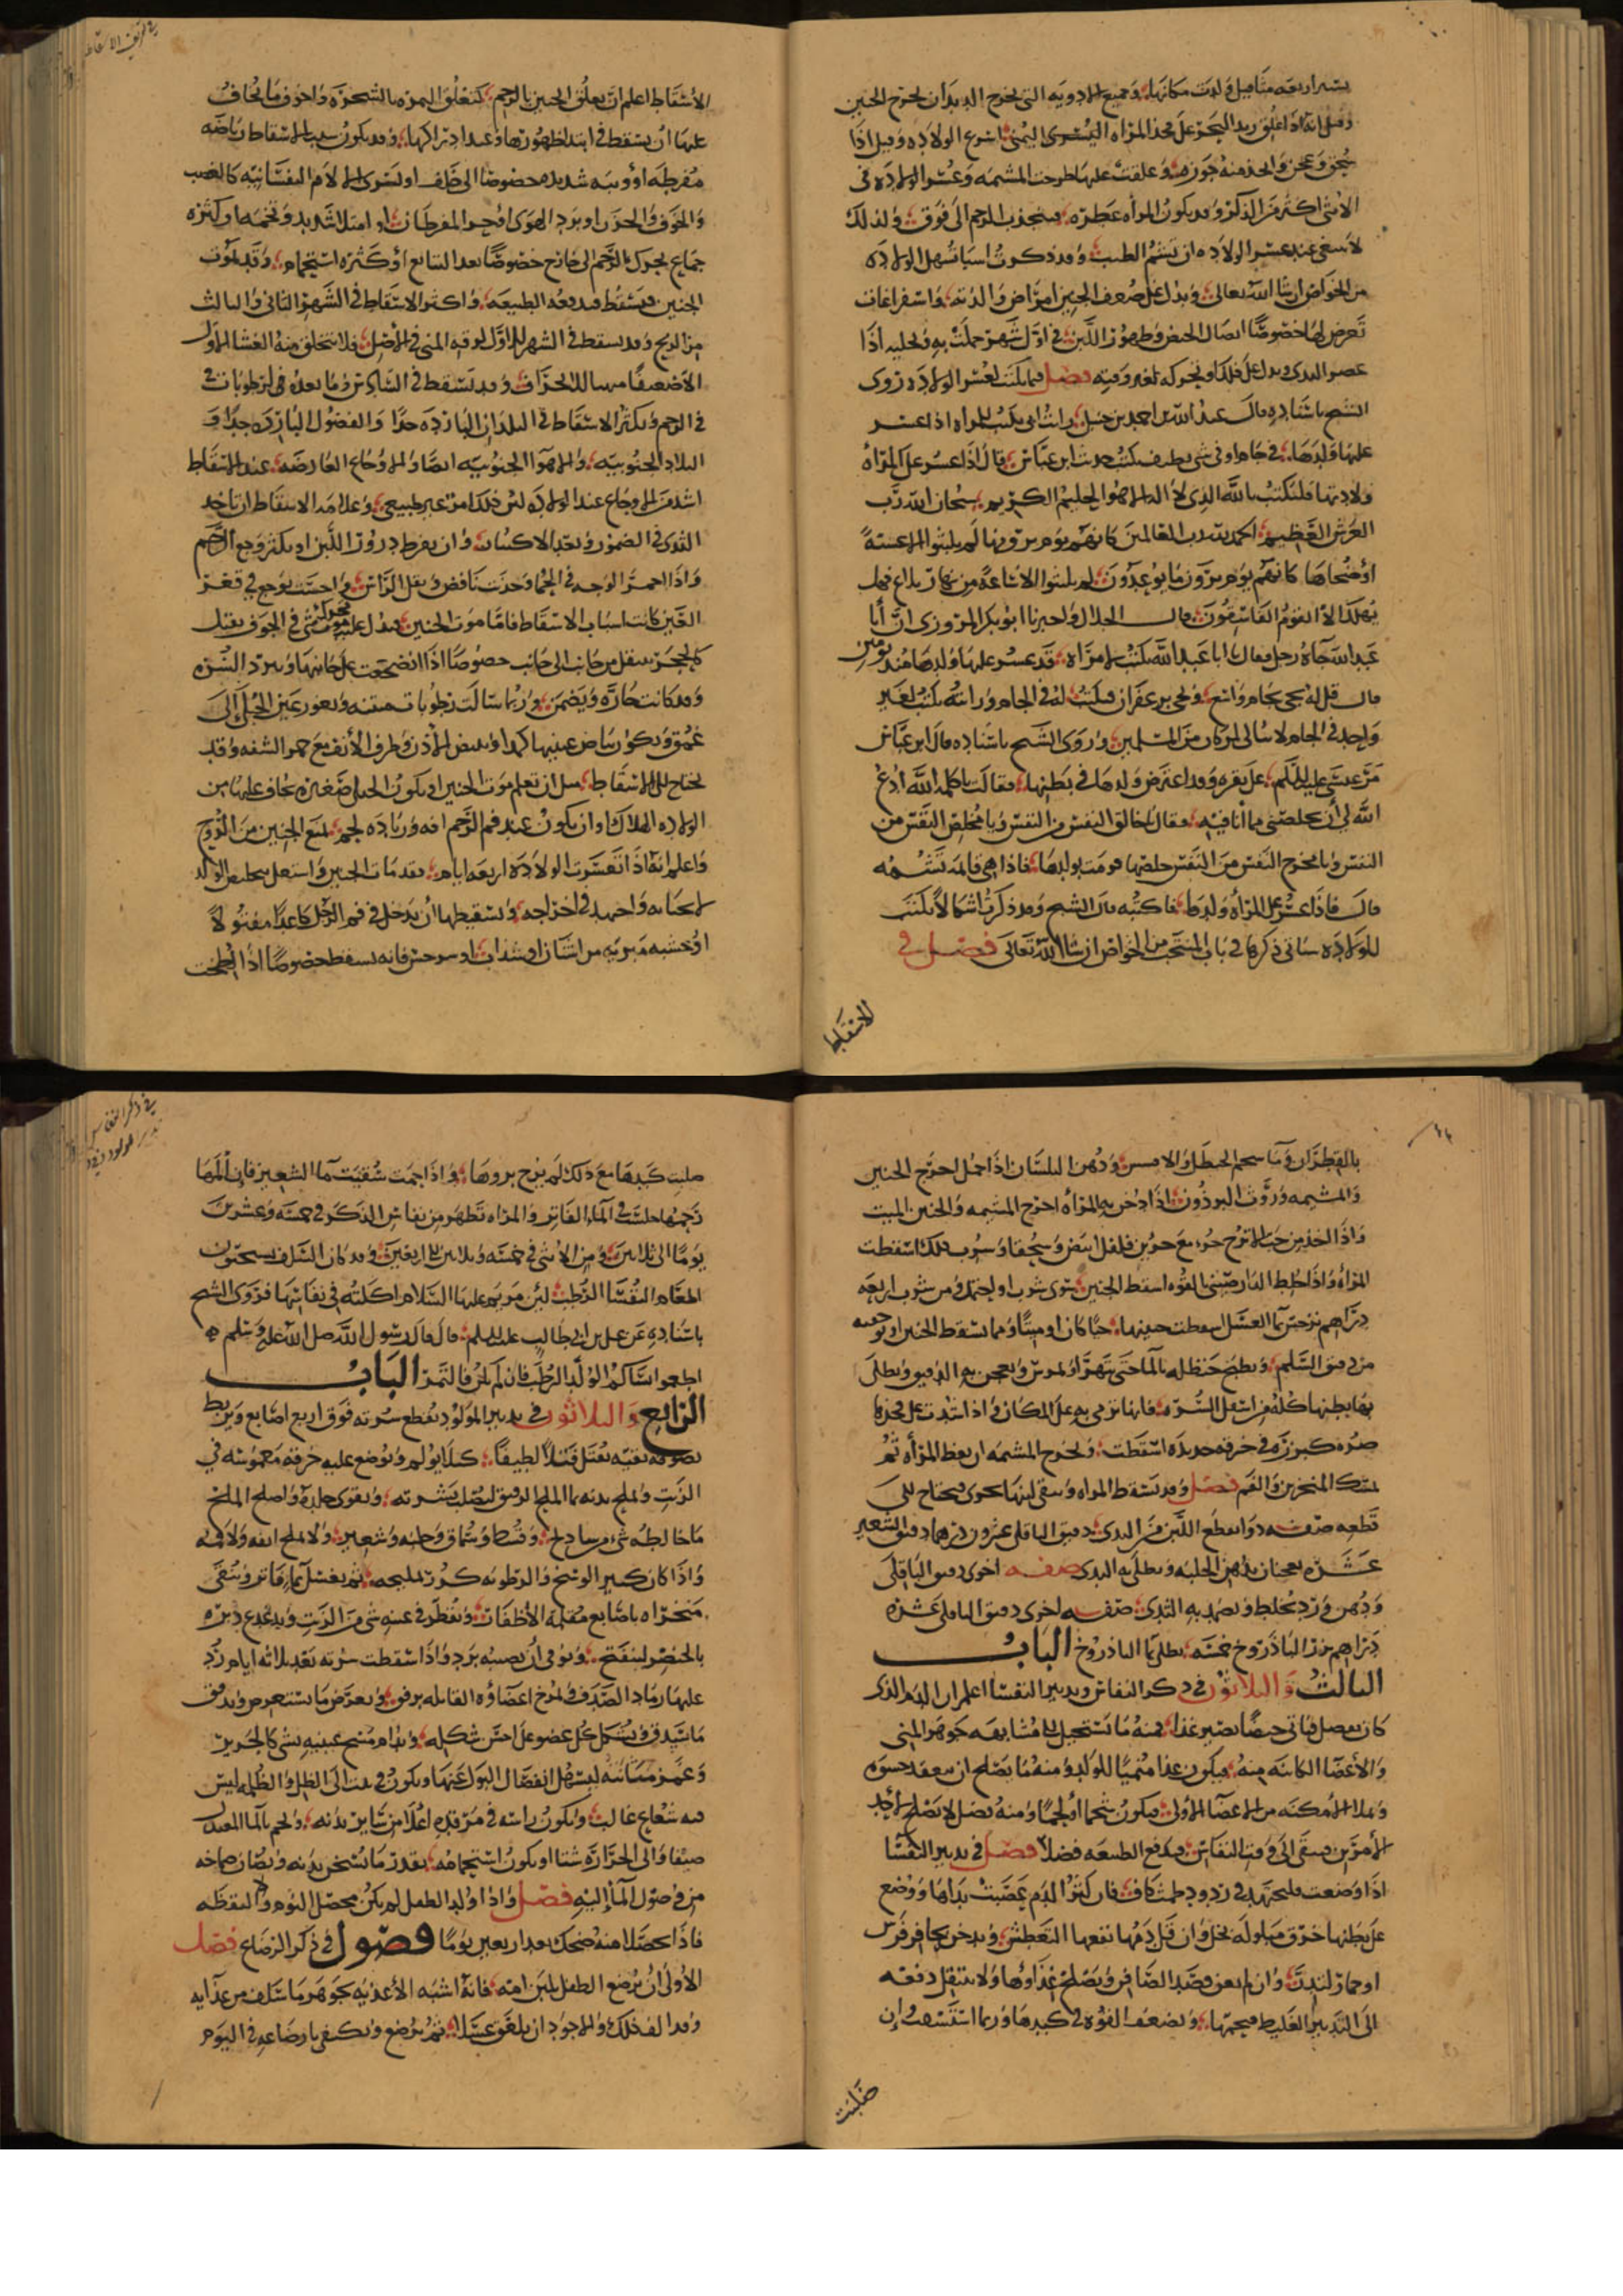 بشر اربعه مثاقيل ولدت مكانها وجميع الادويه التى تخرج الديدان تخرج الجنين
وقيل انه اذا علق زبد البحر على فخذ المراه اليسرى اليمنى اسرع الولاده وقيل اذا
سحق وعجن واتخذ منه جوزه وعلقت عليها طرحت المشيمه وعسر الولاده فى
الانثى اكثر من الذكر وقد يكون المرأه عطره فينجذب الرحم الى فوق ولذلك
لا ينبغى عند عسر الولاده ان يشم الطيب وقد ذكرت اسبابا تسهل الولاده
من الخواص ان شا الله تعالى ويدل على ضعف الجنين امراض والدته واستفراغات
تعرض لها خصوصًا اتصال الحيض وظهور اللبن فى اول شهر حملت به وتحلبه اذا
عصر الثدى ويدل على ذلك ان تحركه لغير وقته فصل فيما يكتب لعسر الولاده روى
الشيخ باسناده قال عبد الله بن احمد بن حنبل رايت ابى يكتب للمراه اذا عسر
عليها ولدها فى جام او فى شى نظيف يكتب حديث ابن عباس قال اذا عسر على المرأه
ولادتها فليكتب بالله الذى لا اله الا هو الحليم الكريم سبحان الله رب
العرش العظيم الحمد لله رب العالمين كانهم يوم يرونها لم يلبثوا الا عشية
او ضحاها كانهم يوم يرون ما يوعدون لم يلبثوا الا ساعة من نهار بلاغ فهل
يهلك الا القوم الفاسقون قال الخلال واخبرنا ابو بكر المروزى ان أبا
عبد الله جاه رجل فقال يا ابا عبد الله تكتب لامراة قد عسر عليها ولدها منذ يومين
قال قل له يجى بجام واسع ويجى بزعفران فكتب له فى الجام ورايته يكتب لغير
واحد فى الجام وروى الشيخ باسناده قال ابن عباس
مر عيسى عليه السلم على بقره وقد اعترض ولدها فى بطنها فقالت يا كلمه الله ادع
الله لى ان يخلصنى مما أنا فيه فقال يا خالق النفس من النفس ويا مخلص النفس من
النفس ويا مخرج النفس من النفس خلصها فرمت بولدها فاذا هى قائمه تشمه
قال فاذا عسر على المرأه ولدها فاكتبه قال الشيخ وقد ذكرت اشكالا تكتب
للولاده سياتى ذكرها فى باب المنتخب من الخواص ان شا الله تعالى فصل فى
الاسقاط
فى تعريف الاسقاط
الاسقاط اعلم ان تعلق الجنين بالرحم كتعلق الثمره بالشجره واخوف ما يخاف
عليها ان يسقط فى ابتدا ظهورها وعند ادراكها وقد يكون سبب الاسقاط رياضه
مفرطه أو وثبه شديده خصوصا الى خلف او لشى من الالام النفسانيه كالغضب
والخوف والحزن او برد الهوى او حر المفرطان او امتلا شديد وتخمه او كثره
جماع يحرك الرحم الى خارج خصوصًا بعد السابع أو كثره استحمام وقد يموت
الجنين فيسقط فتدفعه الطبيعه واكثر الاسقاط فى الشهر الثانى والثالث
من الريح وقد يسقط فى الشهر الاول لرقه المنى فى الاصل فلا يتخلق منه الغشا الاول
الا ضعيفًا وقد يسقط فى السادس وما بعده فى لرطوبات
فى الرحم ويكثر الاسقاط فى البلدان البارده جدًا والفصول البارده جدًا و
البلاد الجنوبيه والاهوا الجنوبيه ايضا والاوجاع العارضه عند الاسقاط
اشد من الاوجاع عند الولاده لان ذلك امر غير طبيعى وعلامه الاسقاط ان ياخذ
الثدى فى الضمور ويعد الاكتناز وان يفرط درور اللبن او يكثر وجع الرحم
واذا احمر الوجه فى الحمل وحدث نافض وثقل الراس واحست بوجع فى قعر
العين كانت اسباب الاسقاط فاما موت الجنين فيدل عليه تحرك شى فى الجوف ثقيل
كالحجر ينتقل من جانب الى جانب خصوصًا اذا اضجعت على جانبها وتبرد السره
وقد كانت حاره ويضمر وربما سالت رطوبات منتنه وتغور عين الحبلى الى
عمق ويكون بياض عينيها كمدا ويبيض الاذن وطرف الأنف مع حمر الشفه وقد
تحتاج الى الاسقاط مثل ان تعلم موت الجنين او يكون الحبلى صغيره يخاف عليها من
الولاده الهلاك او ان يكون عند فم الرحم افه وزياده لحم يمنع الجنين من الخروج
واعلم انه اذا تعسرت الولاده اربعه ايام فقد مات الجنين واشتغل بتخليص الوالده
لاحيائه واجهد فى اخراجه ويسقطها ان يدخل فى فم الرحم كاغدا مفتولا
او خشبه مبريه من اشنان او سذاب او سرخس فانه يسقط خصوصًا اذا لطخت
بالقطران وما شحم الحنظل والافسنتين ودهن البلسان اذا احتمل اخرج الجنين
والمشيمه وروث البرذون اذا دخن به المرأه اخرج المشيمه والجنين الميت
واذا اتخذ من حب الاترج جزء مع جزين فلفل ابيض وسحقا وشرب ذلك اسقطت
المرأه واذا خلط الدارصينى بالقوه اسقط الجنين سوى شرب او احتمل ومن شرب اربعه
دراهم نرجس بما العسل اسقطت جنينها حيًا كان او ميتًا ومما يسقط الجنين او يوجعه
من دقيق السلم ويطبخ حنظله بالما حتى تتهرأ وتمرس ويعجن به الدقيق ويطلى
بها بطنها كله من اسفل السره فانها ترمى به على المكان واذا شدت على فخذها
صره كبزره فى خرقه جديده اسقطت وتخرج المشيمه ان يعطا المرأه ثم
تمسك المنخرين والفم فصل وقد تسقط المراه ويبقى لبنها يجرى فيحتاج الى
قطعه صفه دوا يقطع اللبن من الثدى دقيق الباقلى عشرون درهما دقيق الشعير
عشره يعجنان بدهن الحلبه ويطلى به الثدى صفه اخرى دقيق الباقلى
ودهن ورد تخلط ويضمد به الثدى صفه اخرى دقيق الباقلى عشره
دراهم بزر الباذروخ خمسه يطلى بما الباذروخ الباب
الثالث والثلاثون فى ذكر النفاس وتدبير النفسا اعلم ان الدم الذى
كان ينفصل فياتى حيضًا يصير غذا فمنه ما يستحيل الى مشابهه جوهر المنى
والأعضا الكائنه منه فيكون غذا منميًا للولد ومنه ما يصلح ان ينعقد حشوه
ويملا الامكنه من الاعضا الاولى فيكون شحما أو لحمًا ومنه فضل لا يصلح لأحد
الأمرين فيبقى الى وقت النفاس فتدفع الطبيعه فضلا فصل فى تدبير النفسا
اذا وضعت فليجتهد فى درور دم طمث كاف فان كثر الدم عصبت يداها ووضع
على بطنها خرق مبلوله بخل وان قل دمها نفعها التعطش ويدخن بحافر فرس
او حمار لتدر وان لم يغن فصد الصافن ويصلح غذاؤها ولا تنتقل دفعه
الى التدبير الغليظ فيحميها ويضعف القوه فى كبدها وربما استسقت وإن
صلبت
فى ذكر النفاس
تدبير المولود
صلبت كبدها مع ذلك لم يرج بروها واذا حمت سقيت ما الشعير فإن ألمها
رحمها جلست فى الماء الفاتر والمراه تطهر من نفاس الذكر فى خمسه وعشرين
يومًا الى ثلاثين ومن الأنثى فى خمسه وثلاثين الى اربعين وقد كان السلف يستحبون
اطعام النفسا الرطب لئن مريم عليها السلام اكلته فى نفاسها فروى الشيخ
باسناده عن على بن ابى طالب عليه السلم قال قال رسول الله صلى الله عليه وسلم
اطعموا نساكم الولد الرطب فان لم يكن فالتمر الباب
الرابع والثلاثون فى تدبير المولود تقطع سرته فوق اربع اصابع وتربط
بصوفه نقيه تفتل فتلا لطيفًا كيلا يؤلم ويوضع عليه خرقه مغموسه فى
الزيت ويملح بدنه بما الملح الرقيق لتصلب بشرته ويقوى جلده واصلح الملح
ما خالطه شى من شادنج وقسط وسماق وحلبه وشعير ولا يملح انفه ولا فمه
واذا كان كثير الوسخ والرطوبه كرر تمليحه ثم يغسل بما فاتر وينقى
منخراه باصابع مقلمه الأظفار ويقطر فى عينه شى من الزيت ويدغدغ دبره
بالخنصر لينفتح ويوقى أن يصيبه برد واذا اسقطت سرته بعد ثلاثه ايام ذر
عليها رماد الصدف وتمرخ اعضاؤه القابله برفق ويعرض ما يستعرض ويدقق
ما يستدق ويشكل كل عضو على احسن شكله ويدام مسح عينيه بشى كالحرير
وغمز مثانته ليسهل انفصال البول عنها ويكون فى بيت الى الظل والظلمه ليس
فيه شعاع غالب ويكون راسه فى مرقده اعلا من سائر بدنه ويحم بالما المعتدل
صيفا والى الحراره شتا او يكون استحمامه بقدر ما يسخن بدنه ويصان صماخه
من وصول الما إليه فصل واذا ولد الطفل لم يكن يحصل النوم ولا اليقظه
فاذا حصلا منه ضحك بعد اربعين يومًا فصول فى ذكر الرضاع فصل
الأولى أن يرضع الطفل بلبن امه فانه اشبه الأغذيه بجوهر ما سلف من غذايه
وقد الف ذلك والاجود ان يلعق عسلا ثم يرضع ويكتفى بارضاعه فى اليوم